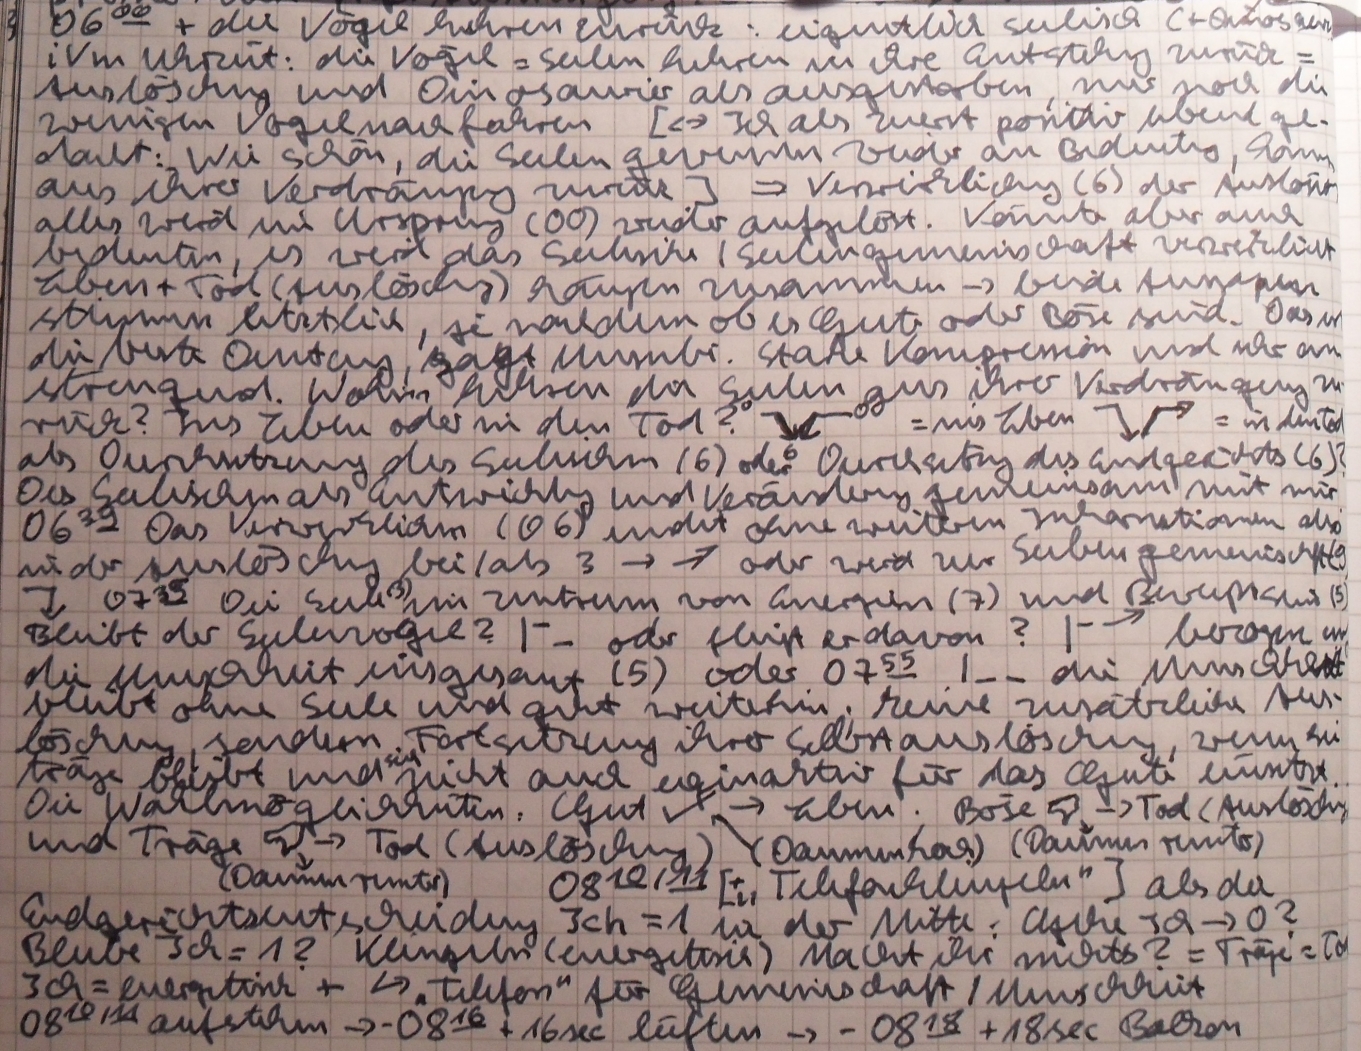 06⁰⁰ + die Vögel kehren zurück: eigentlich seelisch (+ Dinosaurier
iVm Uhrzeit: die Vögel = Seelen kehren in ihre Entstehg zurück =
Auslöschung und Dinosaurier als ausgestorben, nur noch die
wenigen Vögelnachfahren [<-> Ich als zuerst positiv übend ge-
dacht: Wie schön, die Seelen gewinnen wieder an Bedeutg, kommen
aus ihrer Verdrängung zurück] => Verwirklichg (6) der Auslösch
alles wird im Ursprung (00) wieder aufgelöst. Könnte aber auch
bedeuten, es wird das Seelische / Seelengemeinschaft verwirklicht
Leben + Tod (Auslöschg) hängen zusammen -> beide Aussagen
stimmen letztlich, je nachdem ob es Gute oder Böse sind. Das ist
die beste Deutung, sagt Starke Kompression und sehr an
strengend. Wohin kehren die Seelen aus ihrer Verdrängung zu-
rück? Ins Leben oder in den Tod? 00 = ins Leben = in den Tod
als Durchsetzung des Seelischen (6) oder Durchsetzg des Endgerichts (6)?
Des Seelischen als Entwicklg und Veränderg gemeinsam mit mir
06³⁹ Das Verwirklichen (06) endet ohne weiteren Inkarnationen also
in der Auslöschung bei/als 3 -> oder wird zur Seelengemeinschaft (9)
07³⁵ Die Seele (3) im Zentrum von Energien (7) und Bewusstsein (5)
Bleibt der Seelenvogel? |- _ oder fliegt er davon? |- -> bezogen auf
die Menschheit insgesamt (5) oder 07⁵⁵ |_ _ die Menschheit
bleibt ohne Seele und geht weiterhin. Keine zusätzliche Aus-
löschung, sondern Fortsetzung ihrer Selbstauslöschung, wenn sie
träge bleibt und sich nicht auch eginartiv für das Gute einsetzt.
Die Wahlmöglichkeiten: Gut -> Leben. Böse -> Tod (Auslöschg)
und Träge -> Tod (Auslöschung) (Daumen hoch) (Daumen runter)
(Daumen runter) 08¹⁰/¹¹ [+ „Telefonklingeln“] als die
Endgerichtsentscheidung Ich = 1 in der Mitte: Gehe Ich -> 0?
Bleibe Ich = 1? Klingeln (energetisch) Macht ihr nichts? = Träge = Tod
Ich = energetisch + „Telefon“ für Gemeinschaft / Menschheit
08¹⁰/¹¹ aufstehen -> - 08¹⁶ + 16sec lüften -> - 08¹⁸ + 18sec Balkon